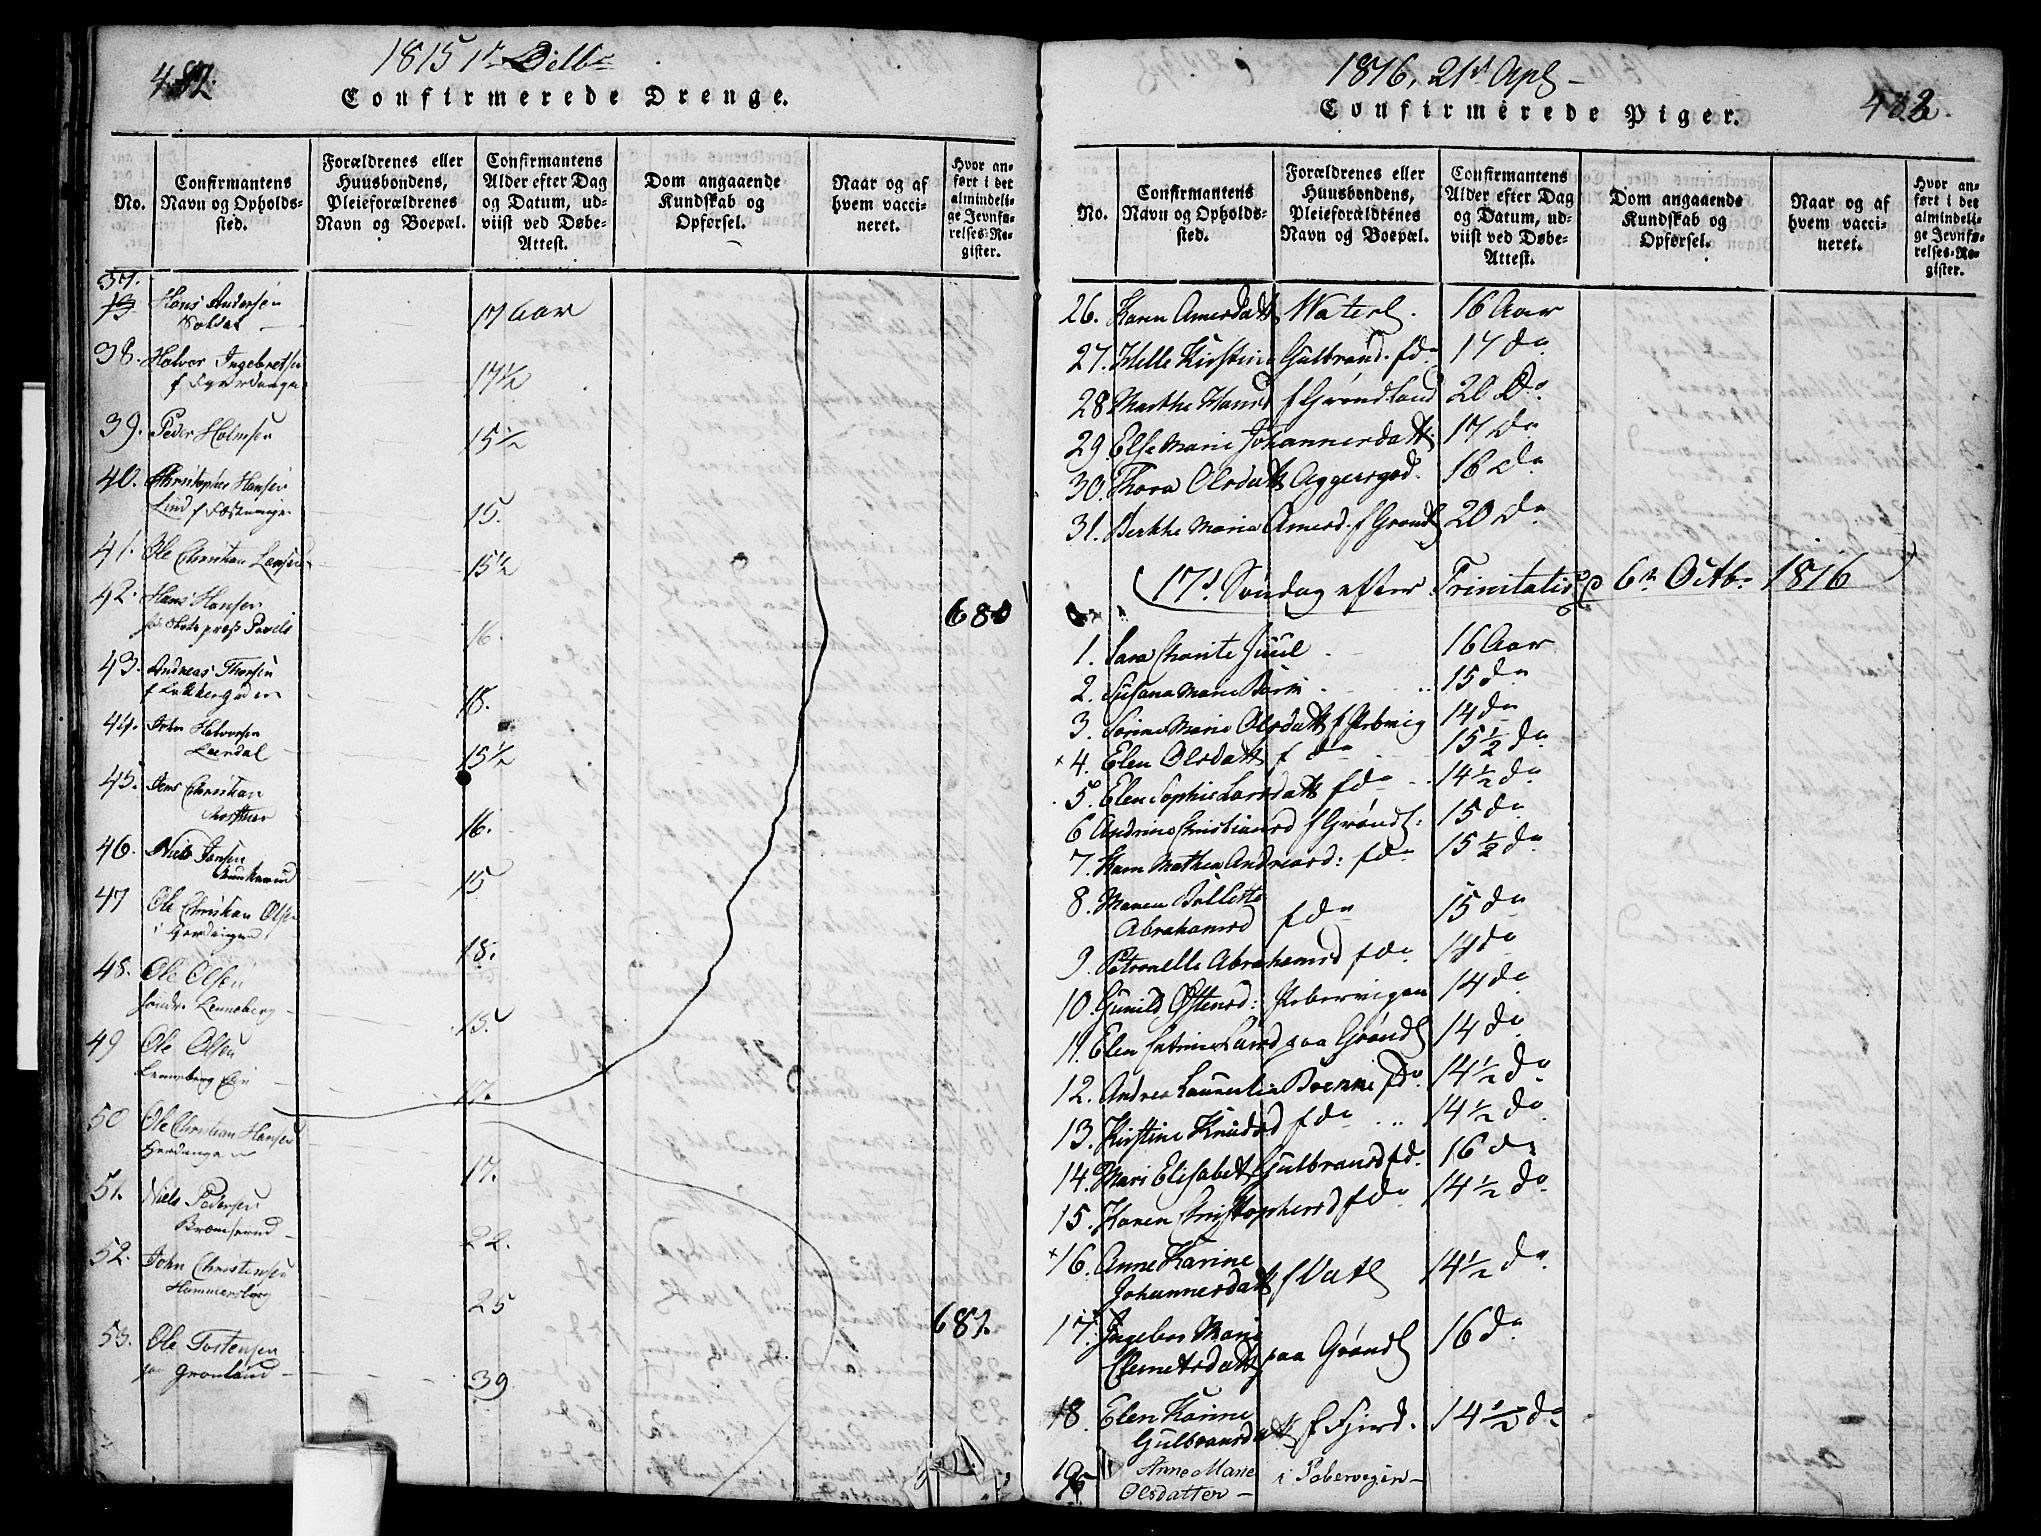 482
1815 1ste Dilbr
Confirmerede Drenge.
No.
Confirmantens Navn og Opholds-sted.
Forældrenes eller Huusbondens, Pleieforældrenes Navn og Boepæl.
Confirmantens Alder efter Dag og Datum, ud-viist ved Døbe-Attest.
Dom angaaende Kundskab og Opførsel.
Naar og af hvem vacci-neret.
Hvor an-ført i det almindeli-ge Jevnfø-relses-Re-gister.
37. Hans Andersen 17 Aar
38. Halvor Ingebretsen 17½
39. Peder Holmsen 15½
40. Christopher Hansen
Lind 15.
41. Ole Christian Larsen 15½
42. Hans Hansen 16. 680
43. Andreas Thorsen 18.
44. John Halvorsen
Lærdal 15½
45. Jens Christian 16.
46. Niels Jensen 15
47 Ole Christian Olsen 18.
48. Ole Olsen
Lenneberg 15.
49 Ole Olsen
Lenneberg 17.
50 Ole Christian Hansen 17.
51. Niels Pedersen 22.
52. John Christensen
Hammersborg 25 681.
53. Ole Tostensen
paa Grønland 39
1816, 21de Apl
483
Confirmerede Piger.
No.
Confirmantens Navn og Opholds-sted.
Forældrenes eller Huusbondens, Pleieforældtenes Navn og Boepæl.
Confirmantens Alder efter Dag og Datum, ud-viist ved Døbe-Attest.
Dom angaaende Kundskab og Opførsel.
Naar og af hvem vacci-neret.
Hvor an-ført i det almindeli-ge Jevnfø-relses-Re-gister.
26. Karen Amersdatt Waterl. 16 Aar
27. Helle Kirstine Gulbrand. f do 17 do
28 Marthe Hansd f Grøndland 20 Do.
29. Else Marie Johannesdatt. 17 do
30. Thora Olsdatt Aggersgad. 16 do
31. Berthe Maria Amersd. f Grønl 20 do
(17d Søndag efter Trinitatis 6te Octbr 1816)
1. Sara Charite Juul 16 Aar
2. Susana Marie 15 do
3. Sorine Marie Olsdatt f Pebervig 14 do
4. Elen Olsdatt f do 15½ do
5. Elen Sophie Larsdatt f do 14½ do
6 Andrine Christiansd f Grøndl: 15 do
7. Karn Mathea Andreasd: f do 15½ do
8. Maren
Abrahamsd f do 15 do
9. Petronelle Abrahamsd f do 14 do
10. Gunild Ostensd: Pebervigen 14 do
11. Elen Catrine Larsd paa Grøndl 14 do
12. Andrea f do 14½ do
13. Kirstine Knudsd f do 14½ do
14. Mari Elisabet Gulbransd f d. 16 do
15. Karen Christophersd f do 14½ do
16. Anne Karine
Johannesdatt f Vatl 14½ do
17. Ingebor Marie
Clemetsdatt paa Grøndl 16 do
18. Elen Karine
Gulbransdatt f Fjerd. 14½ do
19 Anne Marie
Olsdatter i Pebervigen